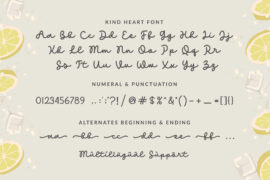 KIND HEART FONT
Aa Bb Cc Dd Ee Ff Gg Hh Ii Jj
Kk Ll Mm Nn Oo Pp Qq Rr Ss
Tt Uu Vv Ww Xx Yy Zz
NUMERAL & PUNCTUATION
0123456789
ALTERNATES BEGINNING & ENDING
aa bb cc dd ee ff
Multilingual Support